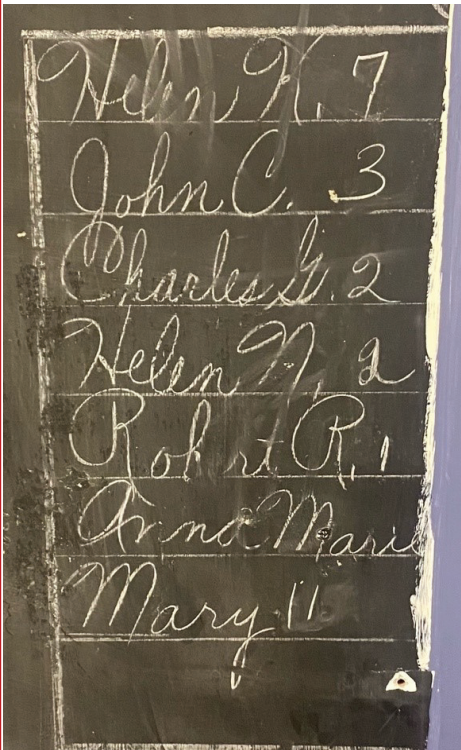 Helen K. 7
John C. 3
Charles G. 2
Helen N. 2
Robert R. 1
Anna Marie
Mary 11